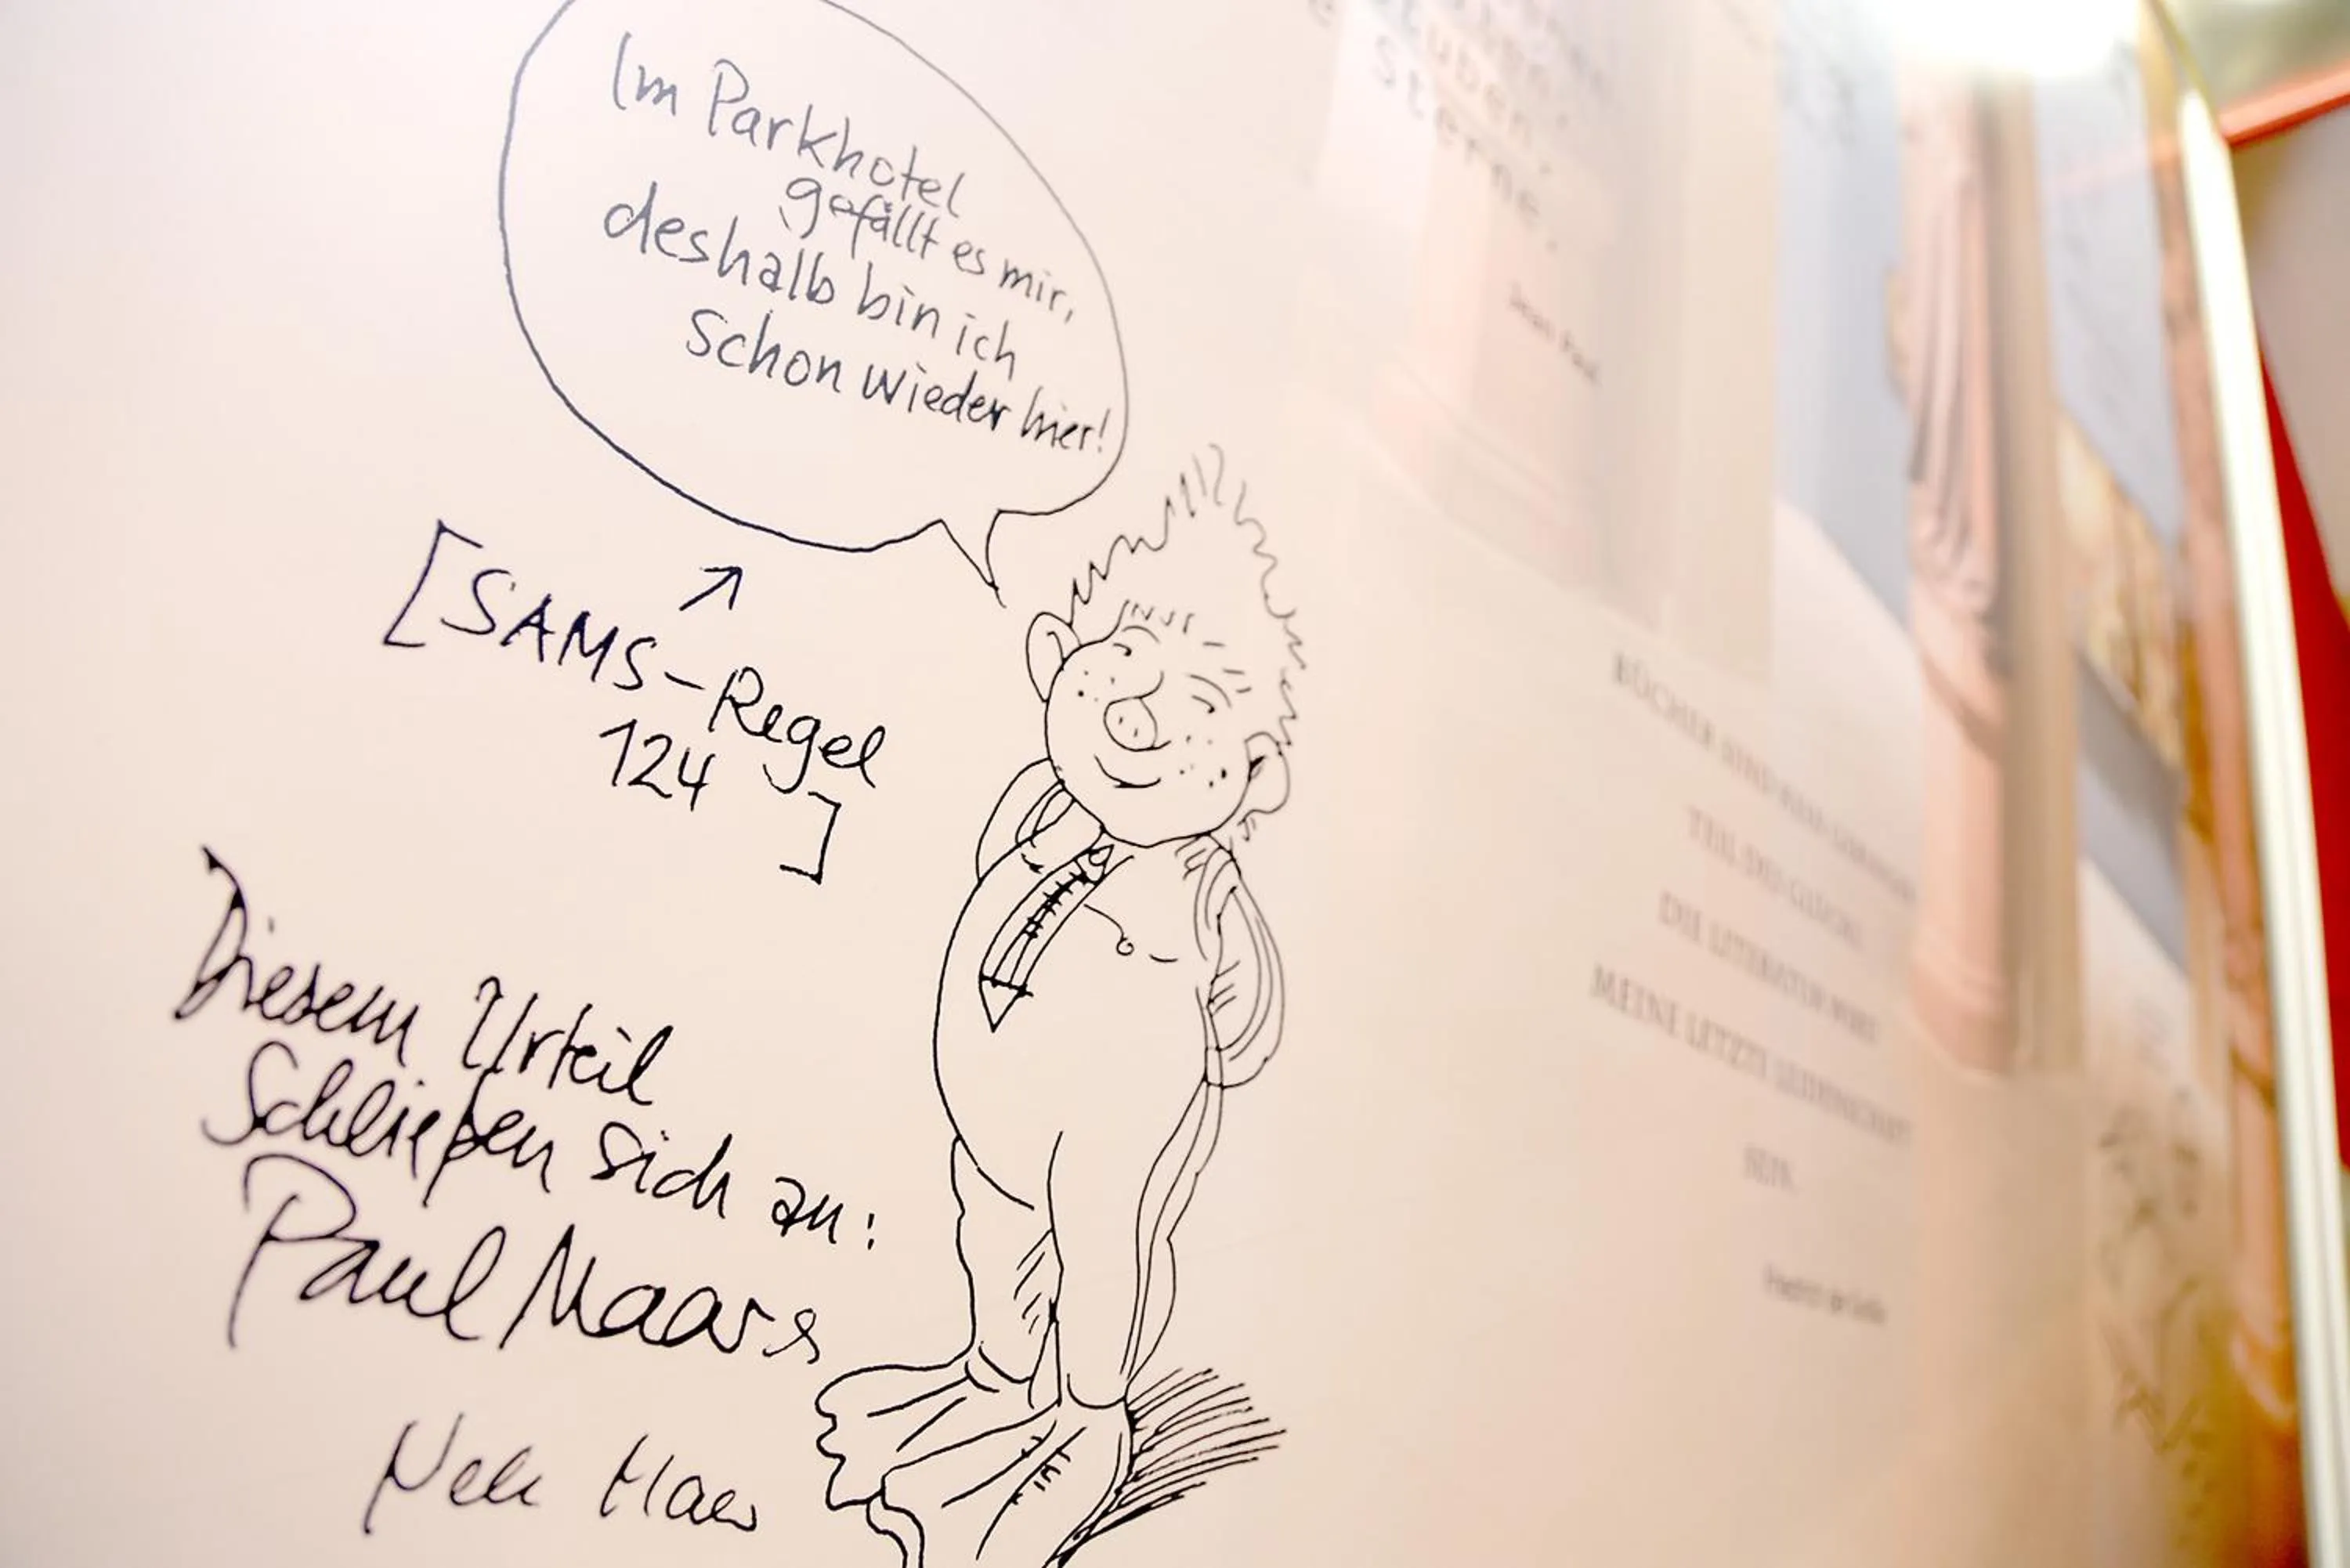 Im Parkhotel
gefällt es mir,
deshalb bin ich
schon wieder hier!
[SAMS-Regel
124 ]
Diesem Urteil
schließen sich an:
Paul Maar &
Nele Maar
Sterne.
Jean Paul
BÜCHER SIND KEIN GERINGER
TEIL DES GLÜCKS.
DIE LITERATUR WIRD
MEINE LETZTE LEIDENSCHAFT
SEIN.